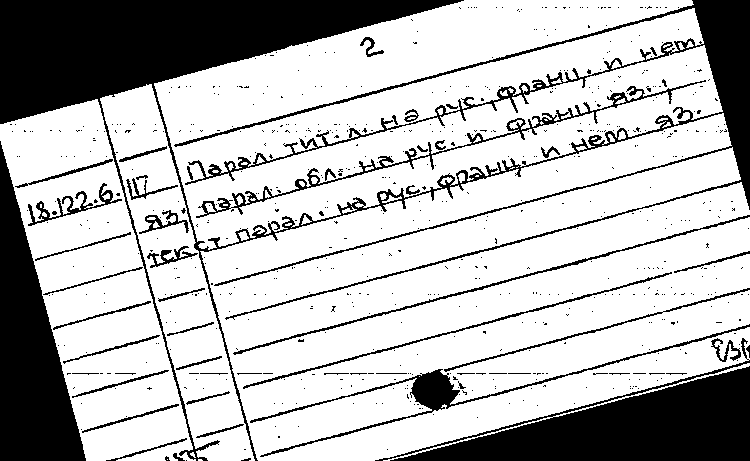 2
Парал. тит. л. на рус., франц. и нем.
18.122.6.117
яз; парал. обл. на рус. и франц. яз.;
текст парал. на рус., франц. и нем. яз.